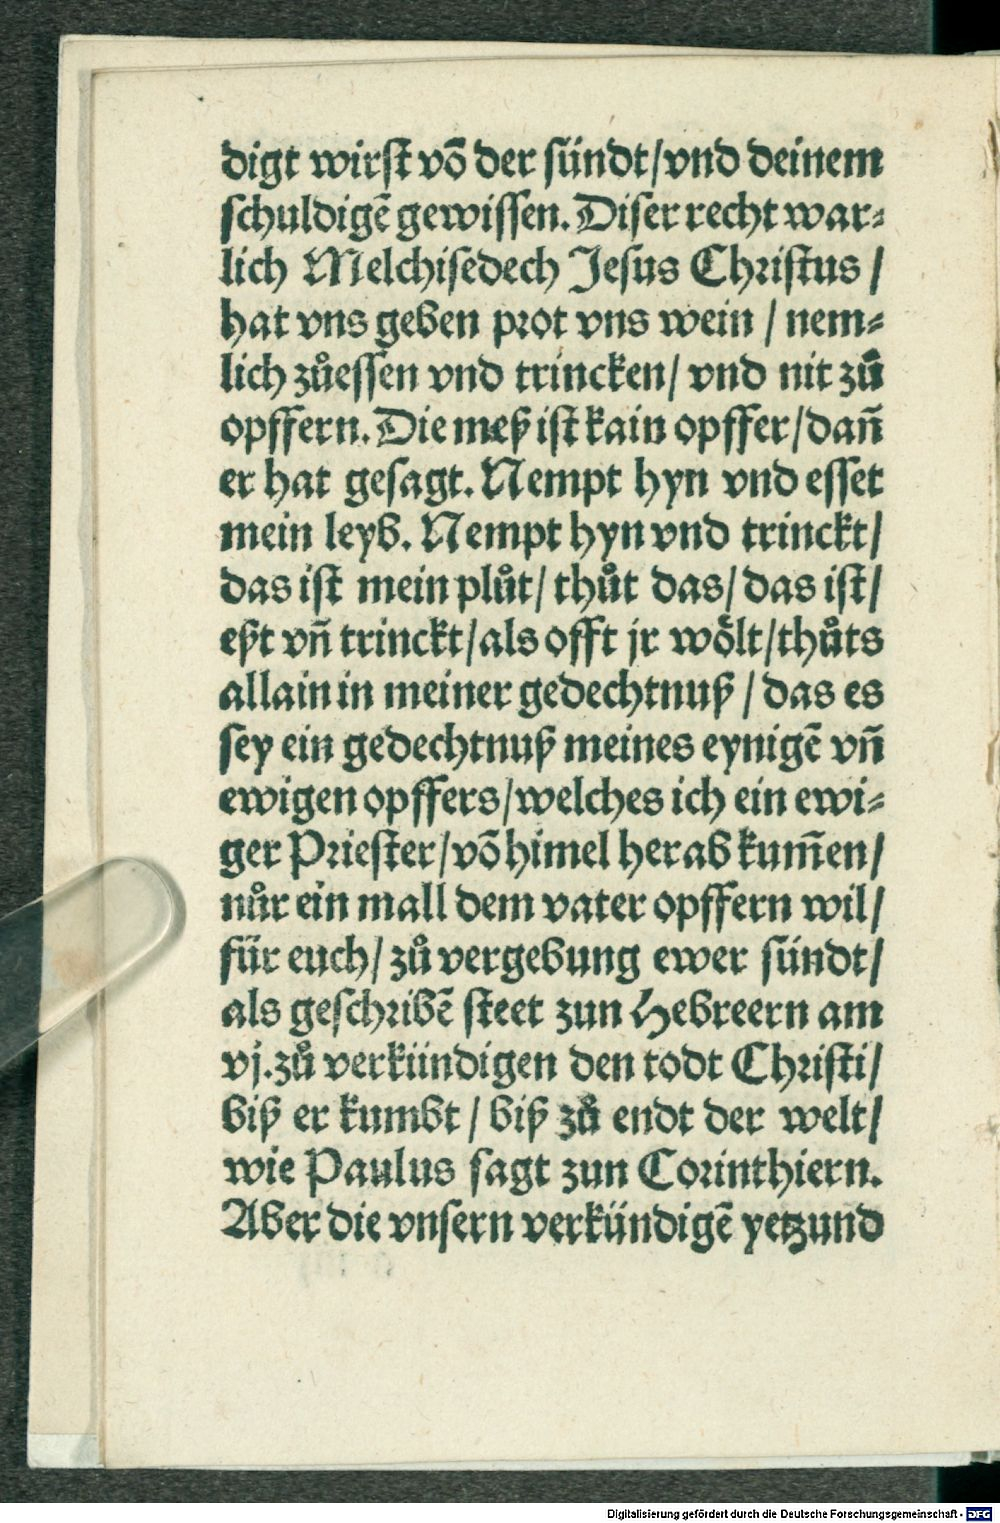 digt wirſt võ der ſündt/vnd deinem
ſchuldigẽ gewiſſen. Diſer recht war⸗
lich Melchiſedech Jeſus Chriſtus /
hat vns geben prot vns wein / nem⸗
lich zůeſſen vnd trincken/ vnd nit zů
opffern. Die meß iſt kain opffer/dañ
er hat geſagt. Nempt hyn vnd eſſet
mein leyb. Nempt hyn vnd trinckt/
das iſt mein plůt/ thůt das/ das iſt/
eßt vñ trinckt/als offt jr woͤlt/thůts
allain in meiner gedechtnuß / das es
ſey ein gedechtnuß meines eynigẽ vñ
ewigen opffers/welches ich ein ewi⸗
ger Prieſter/võ himel herab kum̃en/
nůr ein mall dem vater opffern wil/
für euch/ zů vergebung ewer ſündt/
als geſchribẽ ſteet zun Hebreern am
vj.zů verkündigen den todt Chriſti/
biß er kumbt / biß zů endt der welt/
wie Paulus ſagt zun Corinthiern.
Aber die vnſern verkündigẽ yetzund
Digitalisierung gefördert durch die Deutsche Forschungsgemeinschaft - DFG